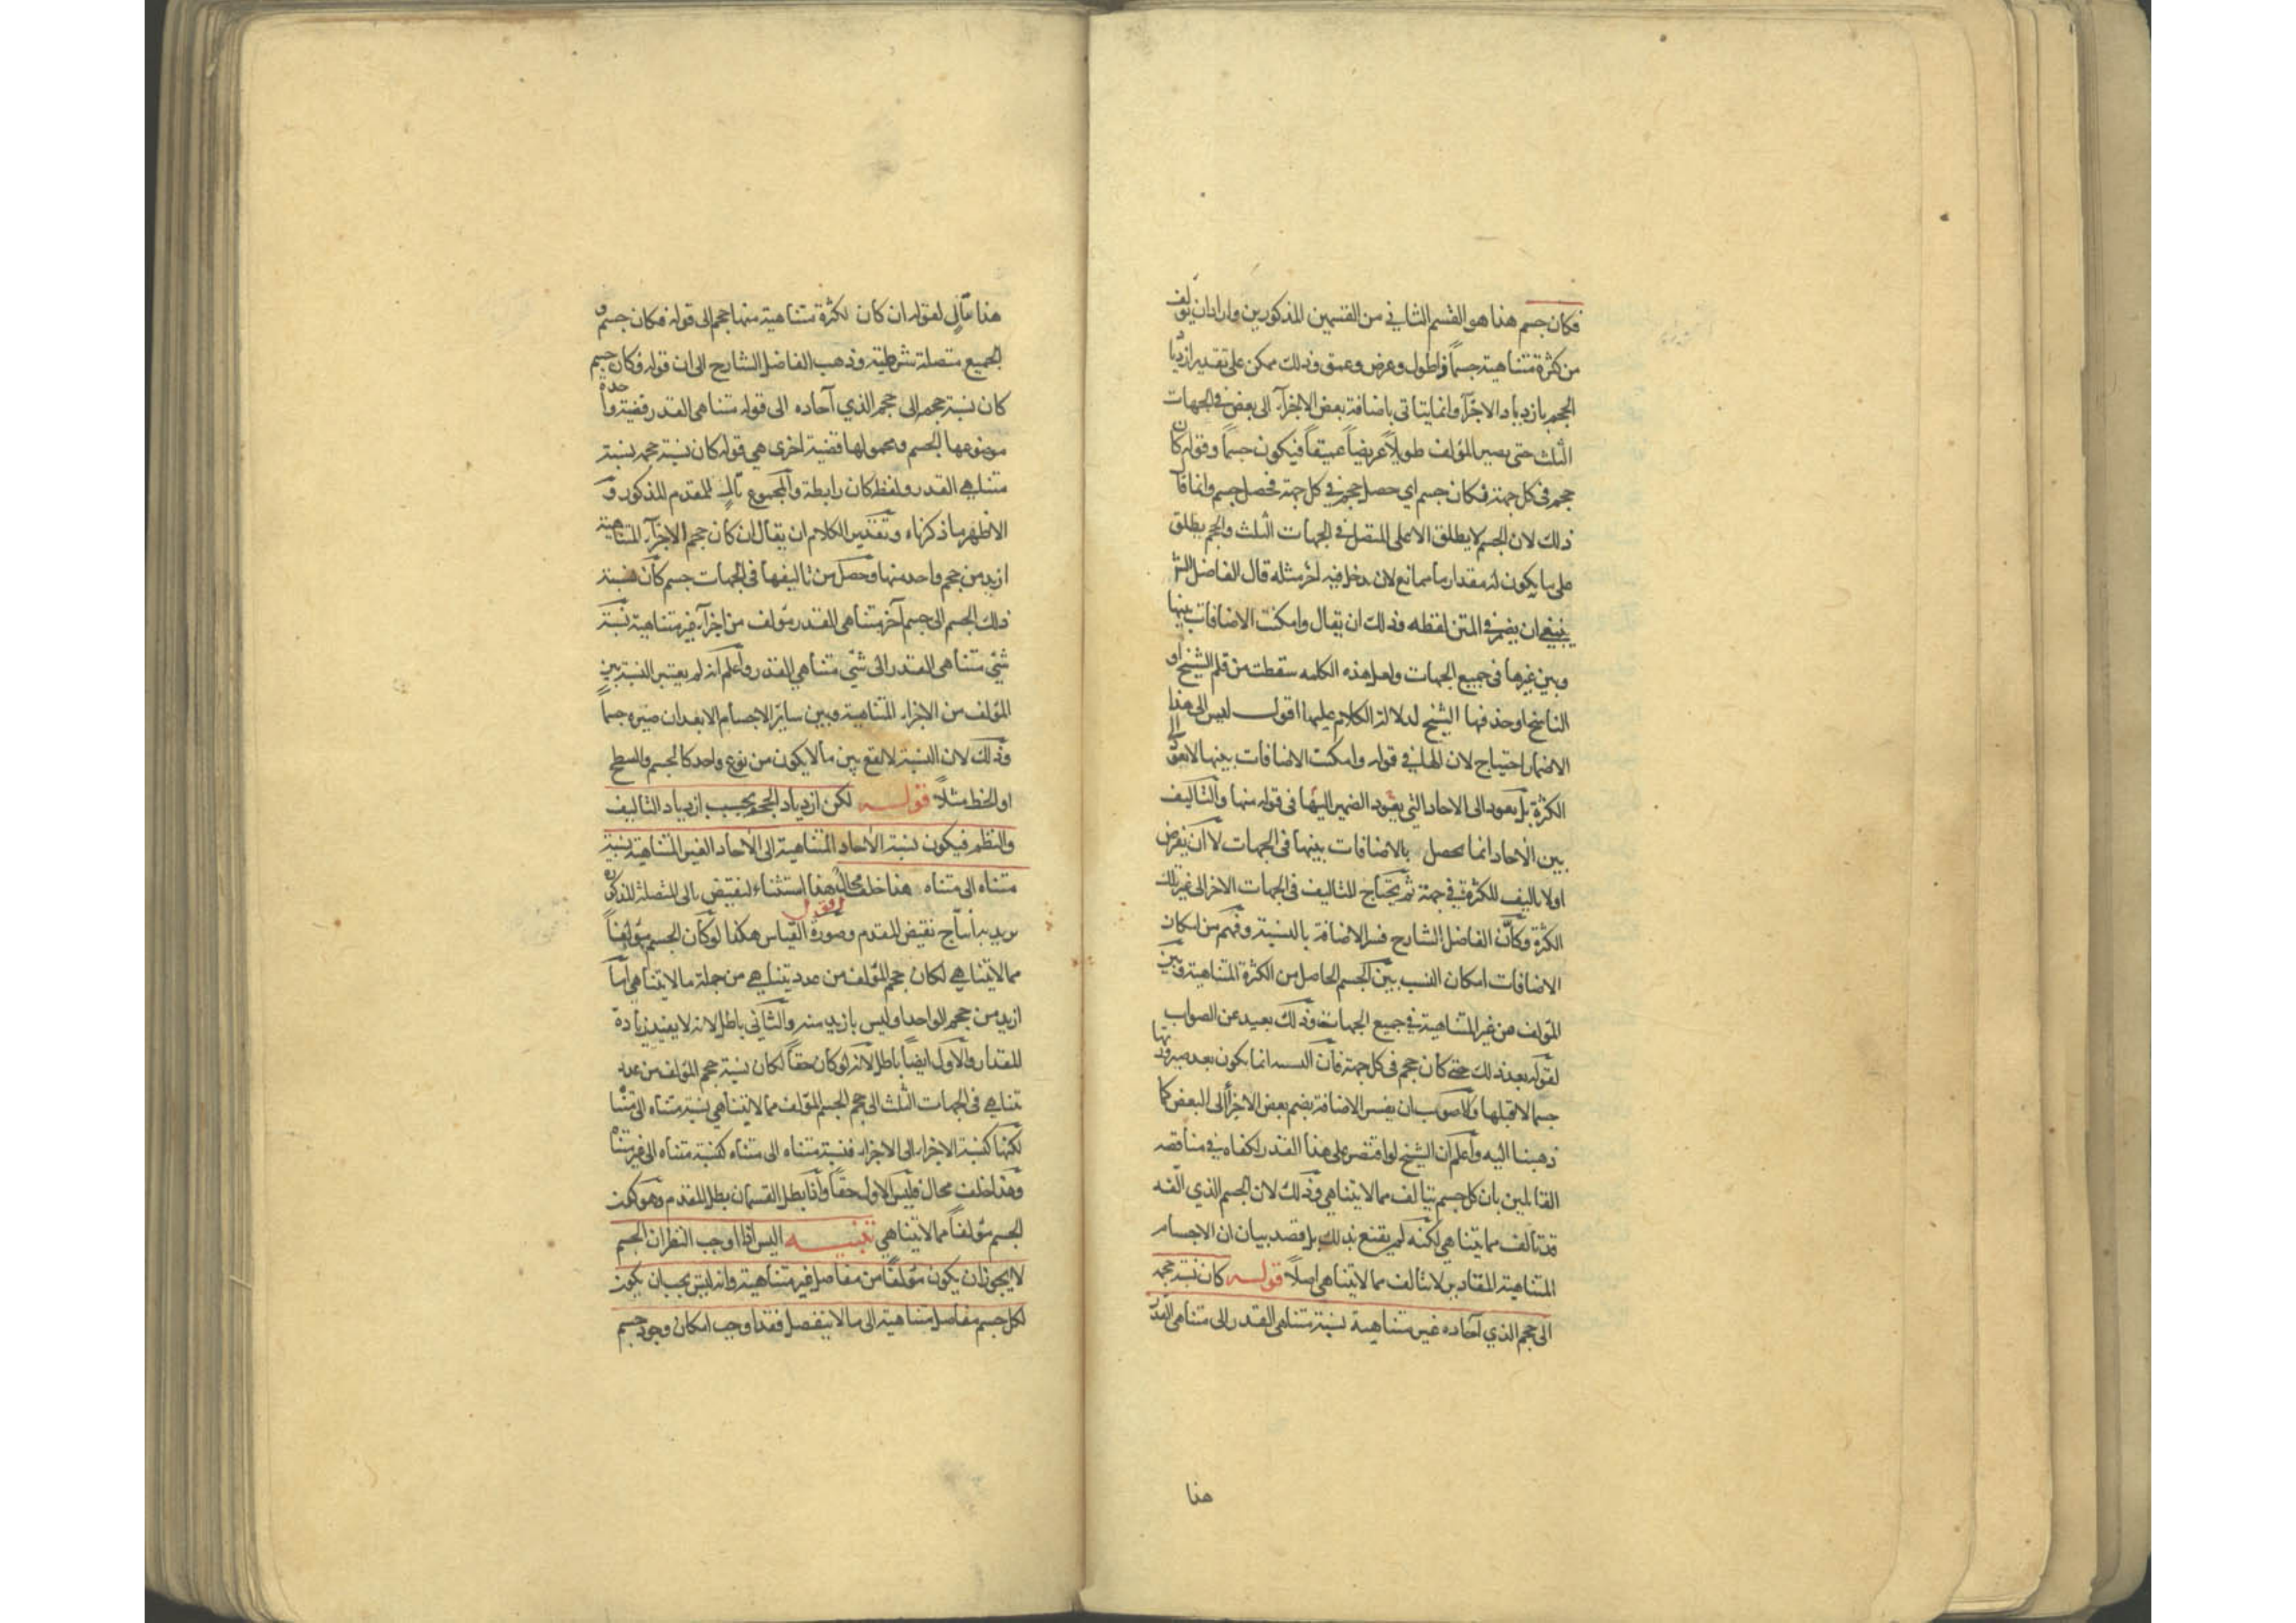 فكان جسم هذا هو القسم الثاني من القسمين المذكورين واراد ان يؤلف
من كثرة متناهية جسماً ذا طول وعرض وعمق وذلك ممكن على تقدير ازدياد
الحجم بازدياد الاجزآء وانما يتاتى باضافة بعض الاجزآء الى بعض في الجهات
الثلث حتى يصير المؤلف طويلاً عريضاً عميقاً فيكون جسماً وقوله كان
حجم في كل جهة فكان جسم اي حصل حجم في كل جهة فحصل جسم وانما قال
ذلك لان الجسم لا يطلق الا على المتصل في الجهات الثلث والحجم يطلق
على ما يكون له مقدار ما مانع لان يدخل فيه آخر مثله قال الفاضل الشارح
ينبغي ان يضمر في المتن لفظه وذلك ان يقال وامكنت الاضافات بينها
وبين غيرها في جميع الجهات ولعل هذه الكلمه سقطت من قلم الشيخ او
الناسخ او حذفها الشيخ لدلالة الكلام عليها اقول ليس الى هذا
الاضمار احتياج لان الهاء في قوله وامكنت الاضافات بينها لا تعود الى
الكثرة بل يعود الى الاحاد التي يعود الضمير اليها في قوله منها والتاليف
بين الاحاد انما يحصل بالاضافات بينها في الجهات لا ان يفرض
اولا تاليف للكثرة في جهة ثم يحتاج للتاليف في الجهات الاخر الى غير تلك
الكثرة وكأن الفاضل الشارح فسر الاضافة بالنسبة وفهم من امكان
الاضافات امكان النسب بين الجسم الحاصل من الكثرة المتناهية وبين
المؤلف من غير المتناهية في جميع الجهات وذلك بعيد عن الصواب
لقوله بعد ذلك حتى كان حجم في كل جهة فان النسبه انما يكون بعد صيرورتها
جسما لا قبلها والاصوب ان يفسر الاضافة بضم بعض الاجزأ الى البعض كما
ذهبنا اليه واعلم ان الشيخ لو اقتصر على هذا القدر لكفاه في مناقضه
القائلين بان كل جسم يتالف مما لا يتناهي وذلك لان الجسم الذي الفه
قد تالف مما يتناهي لكنه لم يقنع بذلك بل قصد بيان ان الاجسام
المتناهية المقادير لا يتالف مما لا يتناهي اصلاً قوله كان نسبة حجمه
الى حجم الذي آحاده غير متناهية نسبة متناهي القدر الى متناهي القدر
هذا
هذا تالٍ لقوله ان كان لكثرة متناهية منها حجم الى قوله فكان جسم و
الجميع متصلة شرطية وذهب الفاضل الشارح الى ان قوله فكان جسم
كان نسبة حجمه الى حجم الذي آحاده الى قوله متناهي القدر قضية واحدة
موضوعها الجسم ومحمولها قضية اخرى هي قوله كان نسبة حجمه نسبة
متناهي القدر ولفظ كان رابطة والمجموع تالٍ للمقدم المذكور و
الاظهر ما ذكرناه وتقدير الكلام ان يقال ان كان حجم الاجزآء المتناهية
ازيد من حجم واحد منها وحصل من تاليفها في الجهات جسم كان نسبة
ذلك الجسم الى جسم آخر متناهي القدر مؤلف من اجزآء غير متناهية نسبة
شيء متناهي القدر الى شيء متناهي القدر واعلم انه لم يعتبر النسبة بين
المؤلف من الاجزاء المتناهية وبين ساير الاجسام الا بعد ان صيره جسما
وذلك لان النسبة لا تقع بين ما لا يكون من نوع واحد كالجسم والسطح
او الخط مثلاً قوله لكن ازدياد الحجم بحسب ازدياد التاليف
والنظم فيكون نسبة الاحاد المتناهية الى الاحاد الغير المتناهية نسبة
متناه الى متناه هذا خلف محال هذا استثناء لنقيض تالي المتصلة المذكورة
اقول
يريد به انتاج نقيض المقدم وصورة القياس هكذا لو كان الجسم مؤلفاً
مما لا يتناهي لكان حجم المؤلف من عدد يتناهي من جملة ما لا يتناهي اما
ازيد من حجم الواحد او ليس بازيد منه والثاني باطل لانه لا يفيد زيادة
المقدار والاول ايضاً باطل لانه لو كان حقاً لكان نسبة حجم المؤلف من عدد
يتناهي في الجهات الثلث الى حجم الجسم المؤلف مما لا يتناهي نسبة متناه الى متناه
لكنها كنسبة الاجزاء الى الاجزاء فنسبة متناه الى متناه كنسبة متناه الى غير متناه
وهذا خلف محال فليس الاول حقاً واذا بطل القسمان بطل المقدم وهو كون
الجسم مؤلفاً مما لا يتناهي تنبيه اليس اذا اوجب النظر ان الجسم
لا يجوز ان يكون مؤلفاً من مفاصل غير متناهية وانه ليس يجب ان يكون
لكل جسم مفاصل متناهية الى ما لا ينفصل فقد اوجب امكان وجود جسم